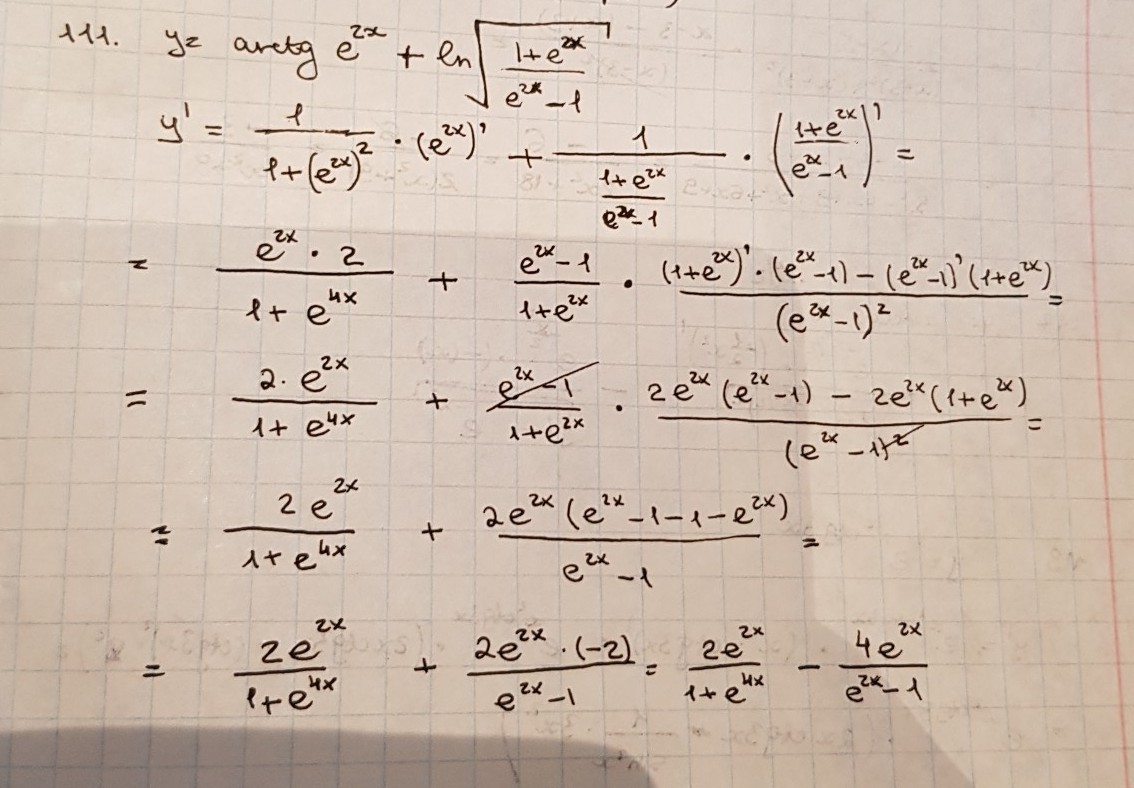 111. y= arctg e^{2x} + ln √((1+e^{2x})/(e^{2x}-1))
y' = 1/(1+(e^{2x})^2) · (e^{2x})' + 1/((1+e^{2x})/(e^{2x}-1)) · ((1+e^{2x})/(e^{2x}-1))' =
= (e^{2x} · 2)/(1+e^{4x}) + (e^{2x}-1)/(1+e^{2x}) · ((1+e^{2x})' · (e^{2x}-1) - (e^{2x}-1)' (1+e^{2x}))/((e^{2x}-1)^2) =
= (2 · e^{2x})/(1+e^{4x}) + (e^{2x}-1)/(1+e^{2x}) · (2e^{2x} (e^{2x}-1) - 2e^{2x} (1+e^{2x}))/((e^{2x}-1)^2) =
= (2e^{2x})/(1+e^{4x}) + (2e^{2x} (e^{2x}-1-1-e^{2x}))/(e^{2x}-1) =
= (2e^{2x})/(1+e^{4x}) + (2e^{2x} · (-2))/(e^{2x}-1) = (2e^{2x})/(1+e^{4x}) - (4e^{2x})/(e^{2x}-1)